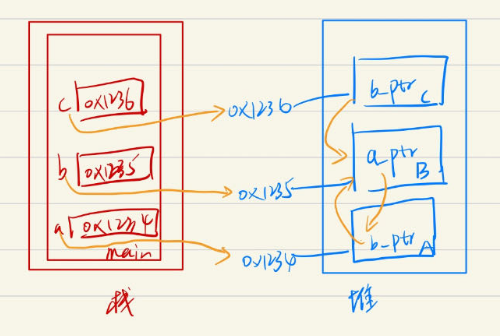 c 0x1236
b 0x1235
a 0x1234
main
栈
0x1236
0x1235
0x1234
b_ptr C
a_ptr B
b_ptr A
堆